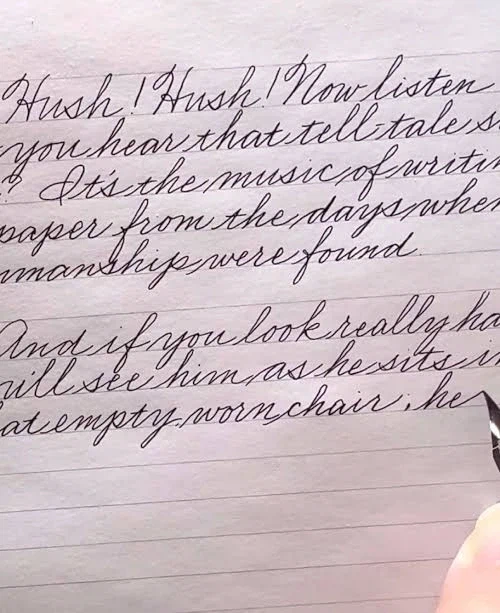 Hush! Hush! Now listen
you hear that tell-tale s
? It's the music of writi
paper from the days when
manship were found.
And if you look really ha
will see him, as he sits i
at empty, worn, chair; he